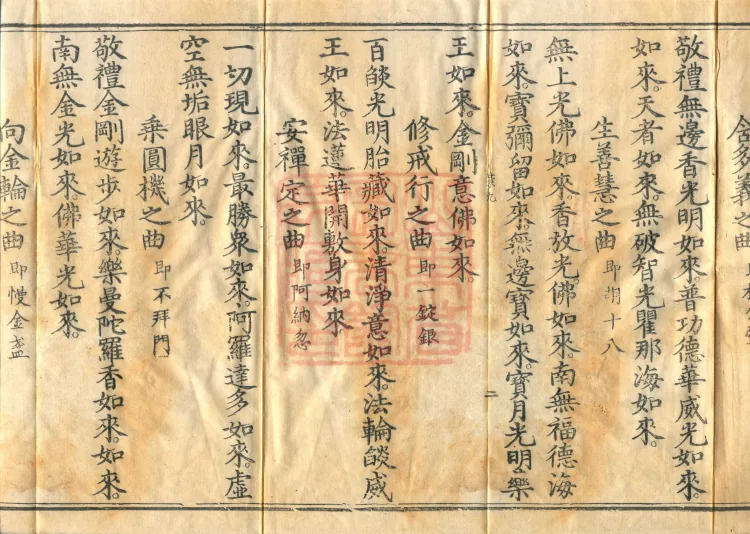 多義之曲
敬禮無邊香光明如來。普功德華威光如來。
如來。天者如來。無破智光瞿那海如來。
生善慧之曲 即胡十八
無上光佛如來。香放光。佛如來。南無福德海
如來。寶彌留如來。無邊寶如來。寶月光明。樂
二
王如來。金剛意佛如來。
修戒行之曲 即一錠銀
百燄光明胎藏如來。清淨意如來。法輪燄威
王如來。法蓮華開敷身如來
安禪定之曲 即阿納忽
一切現如來。最勝衆如來。阿羅達多如來。虛
空無垢眼月如來。
乘圓機之曲 即不拜門
敬禮金剛遊步如來。樂曼陀羅香如來。如來。
南無金光如來。佛華光如來。
向金輪之曲 即慢金盞